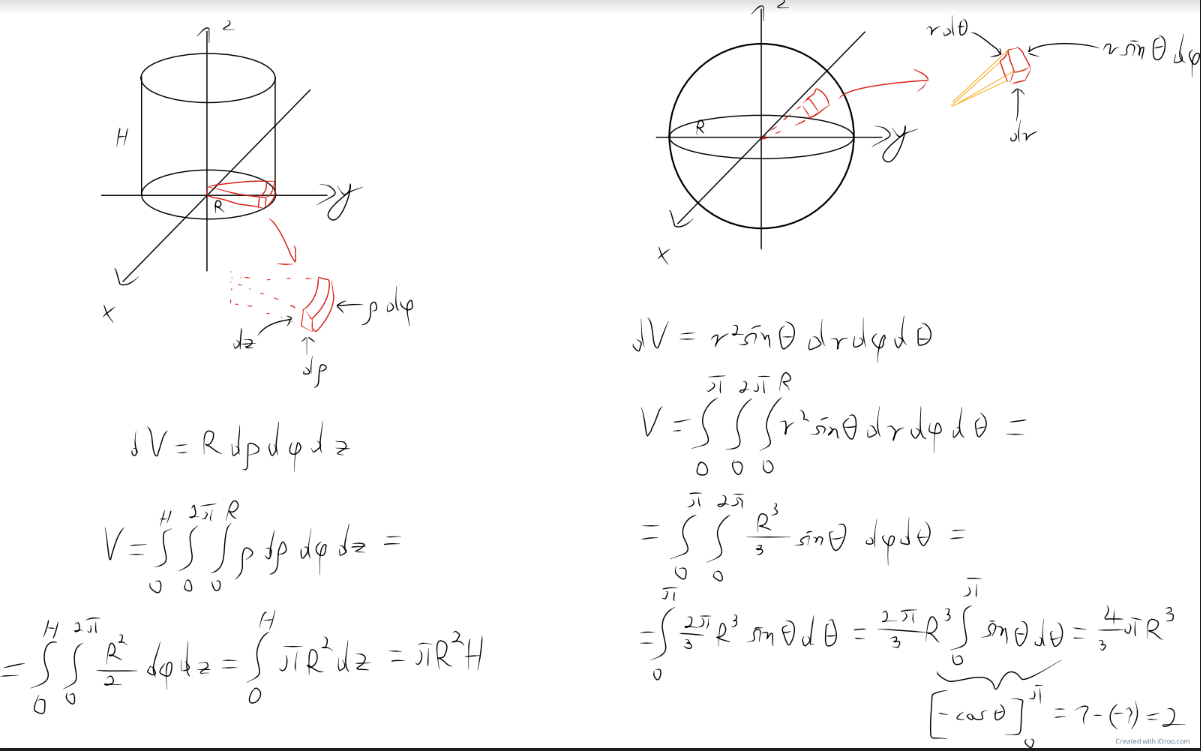 z
H
R
y
x
dz
ρ dφ
dρ
dV = R dρ dφ dz
V = ∫₀ᴴ ∫₀^{2π} ∫₀ᴿ ρ dρ dφ dz =
= ∫₀ᴴ ∫₀^{2π} R²/2 dφ dz = ∫₀ᴴ πR² dz = πR²H
z
R
y
x
r dθ
r sin θ dφ
dr
dV = r² sin θ dr dφ dθ
V = ∫₀^π ∫₀^{2π} ∫₀ᴿ r² sin θ dr dφ dθ =
= ∫₀^π ∫₀^{2π} R³/3 sin θ dφ dθ =
= ∫₀^π 2π/3 R³ sin θ dθ = 2π/3 R³ ∫₀^π sin θ dθ = 4/3 πR³
[-cos θ]₀^π = 1-(-1) = 2
Created with iDroo.com